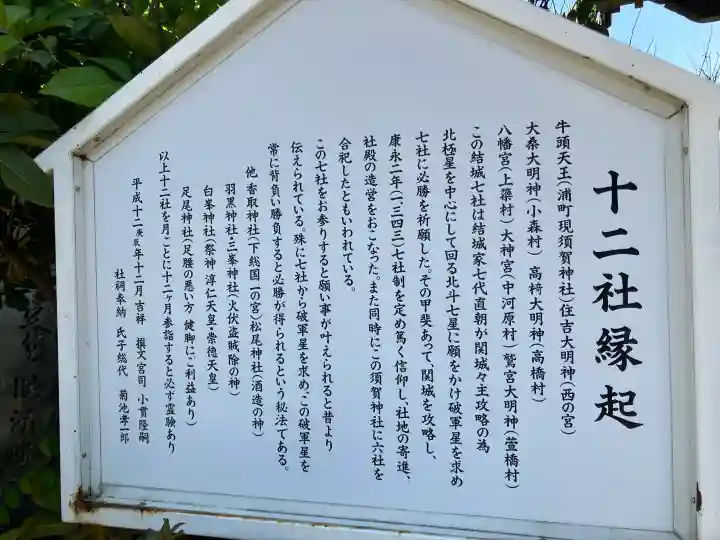 十二社縁起
牛頭天王(浦町現須賀神社)住吉大明神(西の宮)
大桑大明神(小森村) 高椅大明神(高橋村)
八幡宮(上簗村)大神宮(中河原村)鷲宮大明神(萱橋村)
この結城七社は結城家七代直朝が関城々主攻略の為
北極星を中心にして回る北斗七星に願をかけ破軍星を求め
七社に必勝を祈願した。その甲斐あって、関城を攻略し、
康永二年(一、三四三)七社制を定め篤く信仰し、社地の寄進、
社殿の造営をおこなった。また同時にこの須賀神社に六社を
合祀したともいわれている。
この七社をお参りすると願い事が叶えられると昔より
伝えられている。殊に七社から破軍星を求め、この破軍星を
常に背負い勝負すると必勝が得られるという秘法である。
他 香取神社(下総国一の宮)松尾神社(酒造の神)
羽黒神社・三峯神社(火伏盗賊除の神)
白峯神社(祭神 淳仁天皇・崇徳天皇)
足尾神社(足腰の悪い方 健脚にご利益あり)
以上十二社を月ごとに十二ヶ月参詣すると必ず霊験あり
平成十二庚辰年十二月吉祥 撰文宮司 小貫隆嗣
社祠奉納 氏子総代 菊池孝一郎